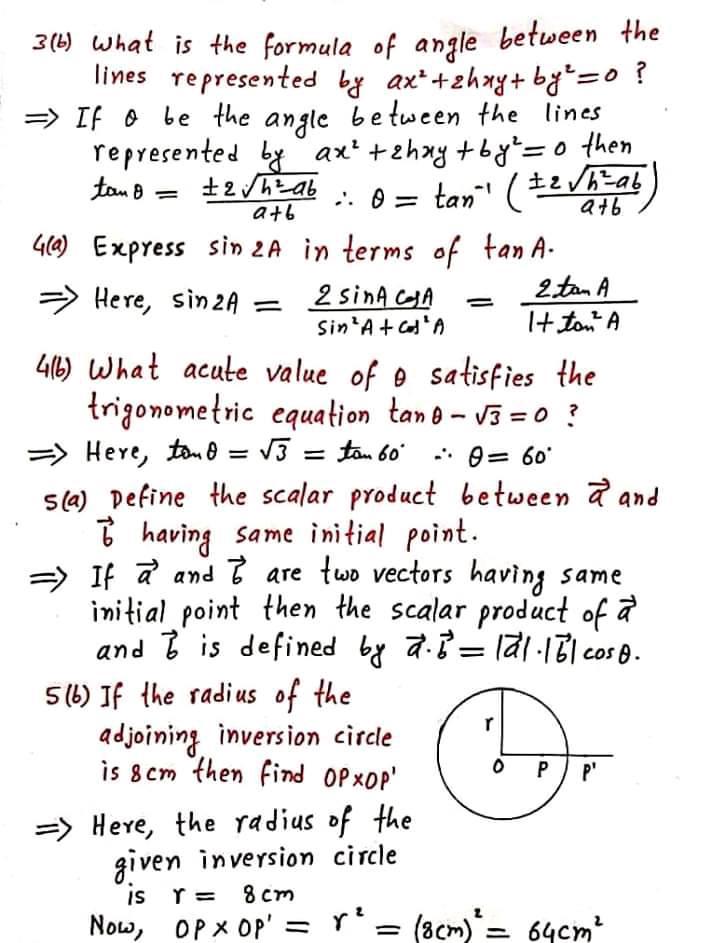 3(b) What is the formula of angle between the
lines represented by ax²+2hxy+by²=0 ?
⇒ If θ be the angle between the lines
represented by ax²+2hxy+by²=0 then
tanθ = ±2√h²-ab / a+b ∴ θ = tan⁻¹ (±2√h²-ab / a+b)
4(a) Express sin 2A in terms of tan A.
⇒ Here, sin2A = 2 sinA cosA / sin²A + cos²A = 2 tan A / 1+ tan² A
4(b) What acute value of θ satisfies the
trigonometric equation tanθ - √3 = 0 ?
⇒ Here, tanθ = √3 = tan 60° ∴ θ = 60°
5(a) Define the scalar product between a⃗ and
b⃗ having same initial point.
⇒ If a⃗ and b⃗ are two vectors having same
initial point then the scalar product of a⃗
and b⃗ is defined by a⃗.b⃗ = |a⃗|.|b⃗| cosθ.
5(b) If the radius of the
adjoining inversion circle
is 8cm then find OP×OP'
r
O P P'
⇒ Here, the radius of the
given inversion circle
is r = 8cm
Now, OP × OP' = r² = (8cm)² = 64cm²